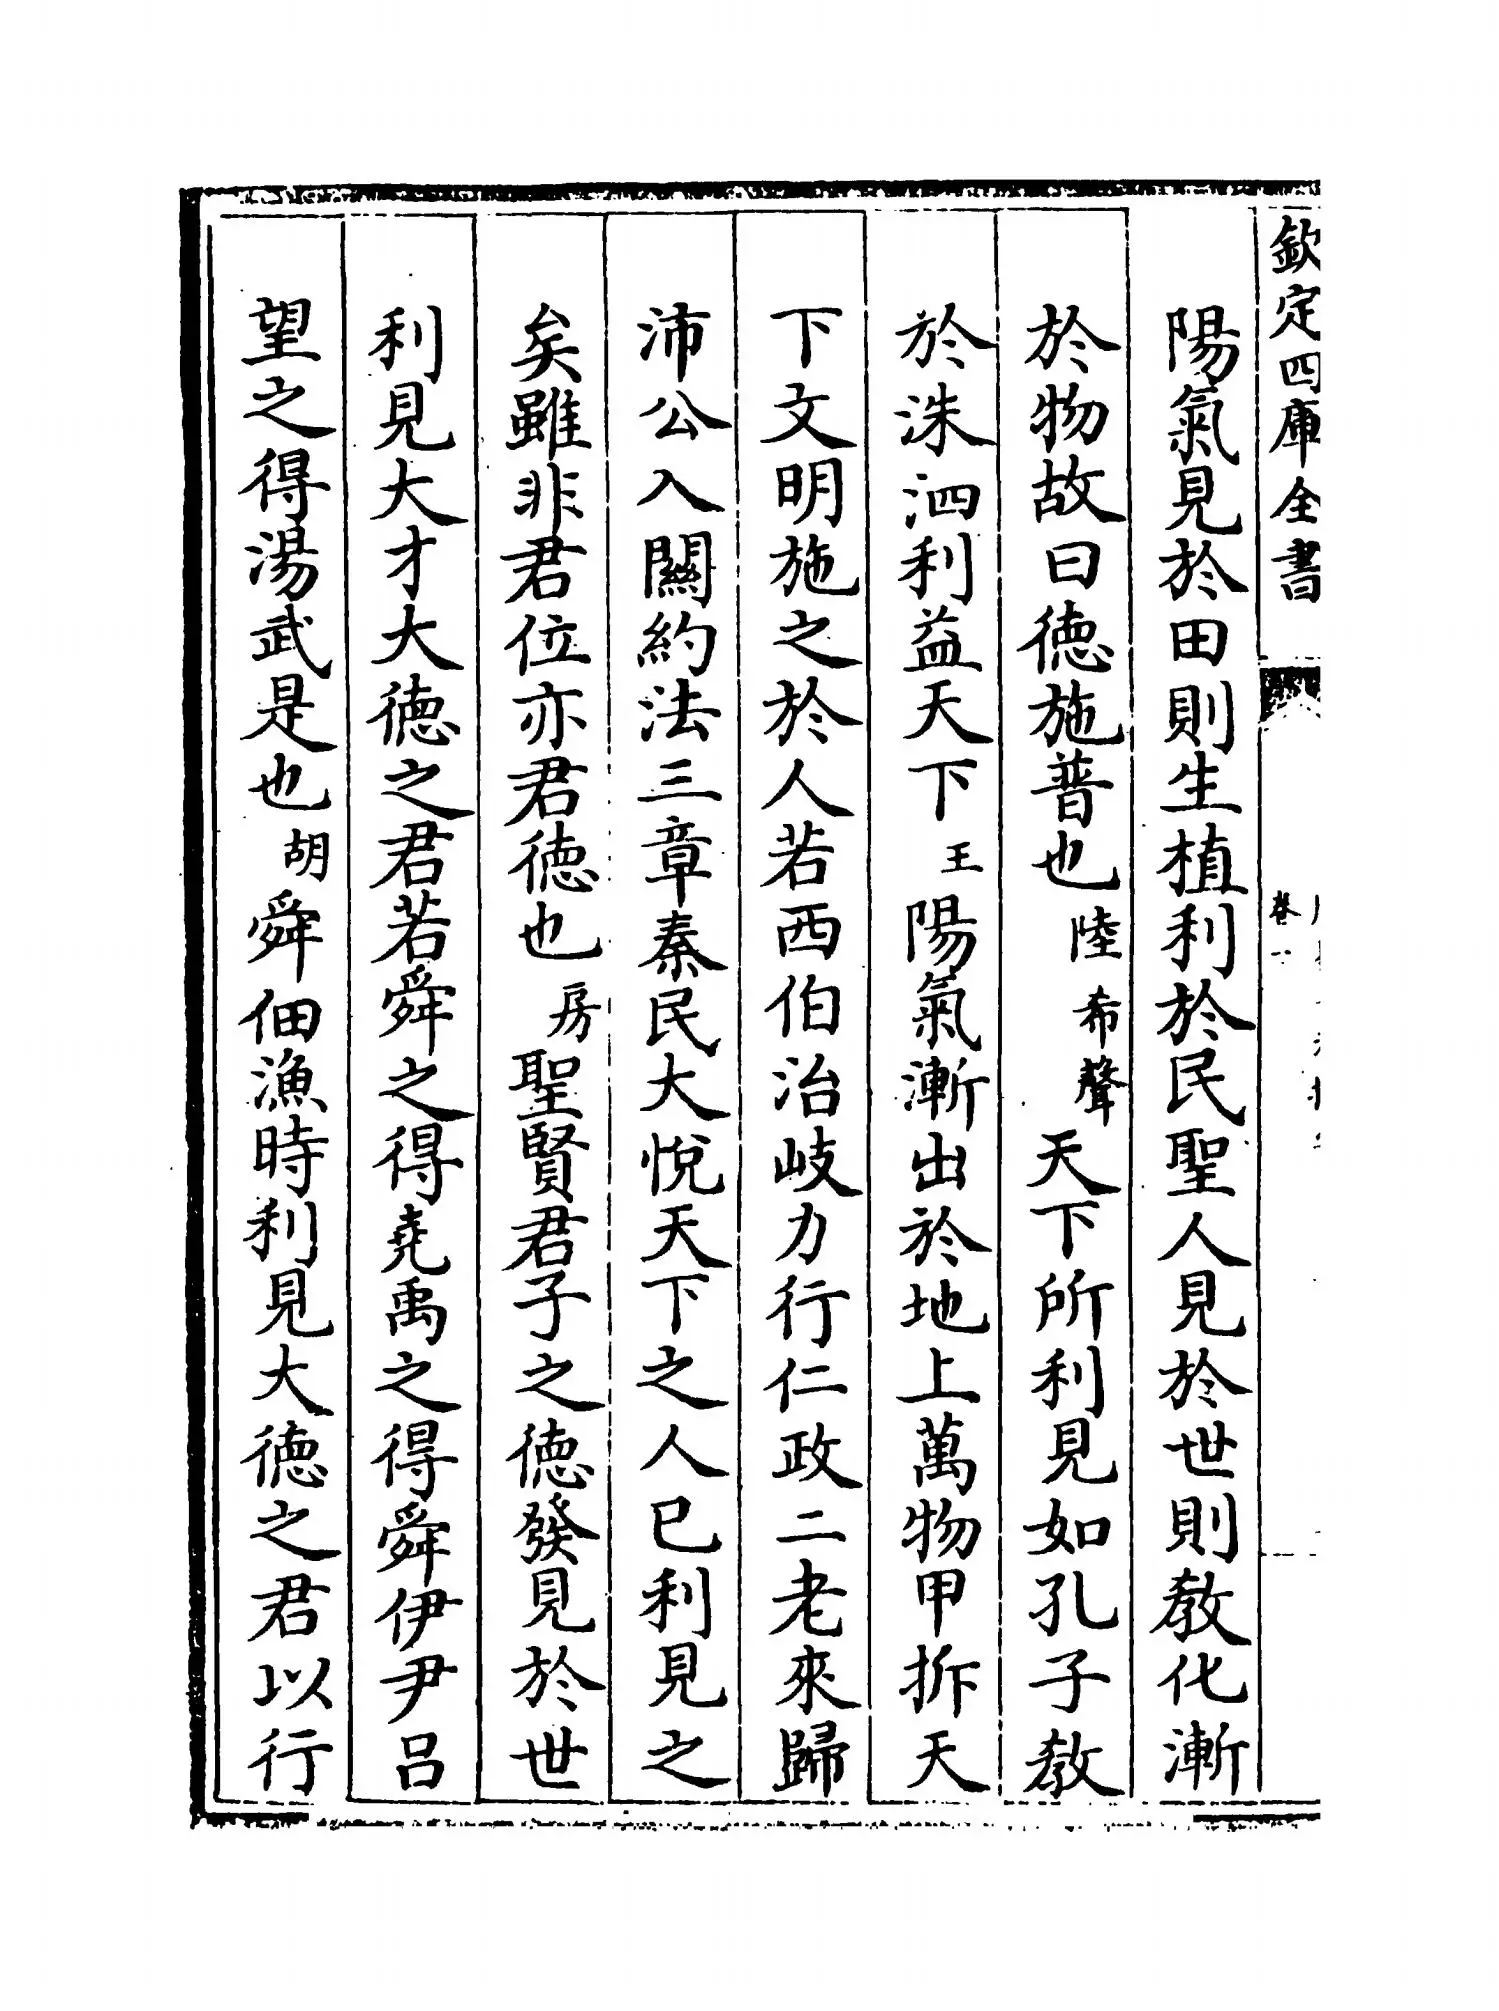 欽定四庫全書
卷一
陽氣見於田則生植利於民聖人見於世則教化漸
於物故曰德施普也陸希聲天下所利見如孔子教
於洙泗利益天下王陽氣漸出於地上萬物甲拆天
下文明施之於人若西伯治岐力行仁政二老來歸
沛公入關約法三章秦民大悅天下之人已利見之
矣雖非君位亦君德也房聖賢君子之德發見於世
利見大才大德之君若舜之得堯禹之得舜伊尹呂
望之得湯武是也胡舜佃漁時利見大德之君以行